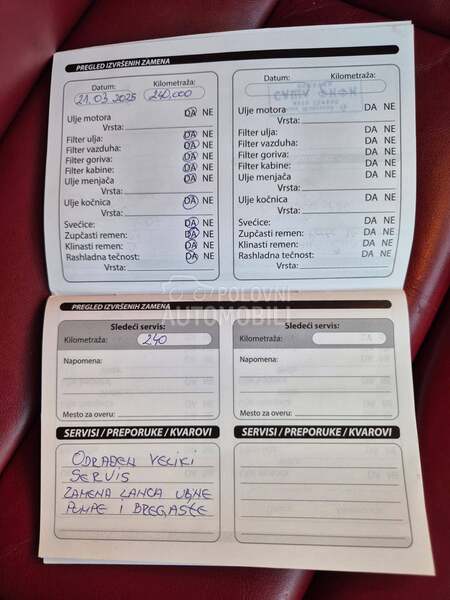 PREGLED IZVRŠENIH ZAMENA
Datum: Kilometraža:
21.03.2025 240,000
Ulje motora DA NE
Vrsta:
Filter ulja: DA NE
Filter vazduha: DA NE
Filter goriva: DA NE
Filter kabine: DA NE
Ulje menjača DA NE
Vrsta:
Ulje kočnica DA NE
Vrsta:
Svećice: DA NE
Zupčasti remen: DA NE
Klinasti remen: DA NE
Rashladna tečnost: DA NE
Vrsta:
Datum: Kilometraža:
Ulje motora DA NE
Vrsta:
Filter ulja: DA NE
Filter vazduha: DA NE
Filter goriva: DA NE
Filter kabine: DA NE
Ulje menjača DA NE
Vrsta:
Ulje kočnica DA NE
Vrsta:
Svećice: DA NE
Zupčasti remen: DA NE
Klinasti remen: DA NE
Rashladna tečnost: DA NE
Vrsta:
POLOVNI
AUTOMOBILI
PREGLED IZVRŠENIH ZAMENA
Sledeći servis:
Kilometraža: 240
Napomena:
Mesto za overu:
SERVISI / PREPORUKE / KVAROVI
ODRAĐEN VELIKI
SERVIS
ZAMENA LANCA ULJNE
PUMPE I BREGASTE
Sledeći servis:
Kilometraža:
Napomena:
Mesto za overu:
SERVISI / PREPORUKE / KVAROVI